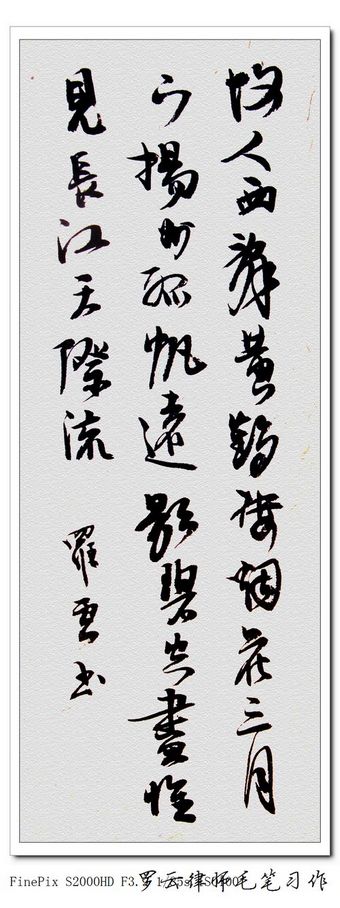 故人西辞黄鶴楼烟花三月
下揚州孤帆遠影碧空盡惟
見長江天際流
羅雲书
FinePix S2000HD F3.
罗云律师毛笔习作